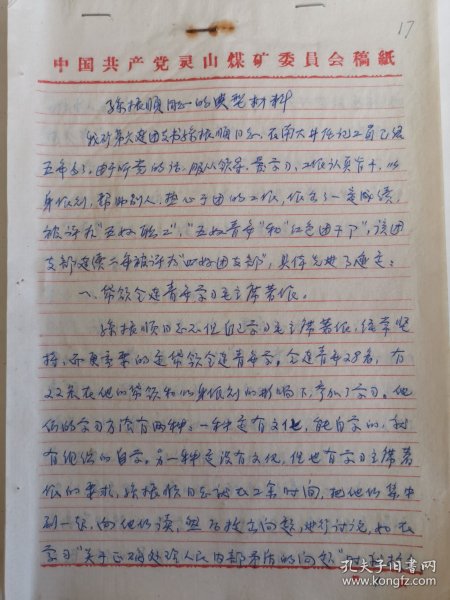 17
中国共产党灵山煤矿委员会稿紙
孙振顺同志的典型材料
我矿第六连团支书孙振顺同志,在南大井任记工员已经
五年多了,由于听党的话,服从领导,爱学习,工作认真肯干,以
身作则,帮助别人,热心于团的工作,作出了一定成绩,
被评为"五好职工","五好青年"和"红色团干下",该团
支部连续二年被评为"四好团支部",具体先进事迹是:
一、带领全连青年学习毛主席著作。
孙振顺同志不但自己学习毛主席著作,经常坚
持,而更重要的是带领全连青年学。全连青年28名,有
22名在他的带领和以身作则的影响下,参加了学习。他
们的学习方法有两种:一种是有文化,能自学的,就
有组织的自学。另一种是没有文化,但也有学习主席著
作的要求,孙振顺同志就在工余时间,把他们集中
到一起,向他们读,然后提出问题,进行讨论,如在
学习"关于正确处理人民内部矛盾的问题"时
孔夫子旧书网